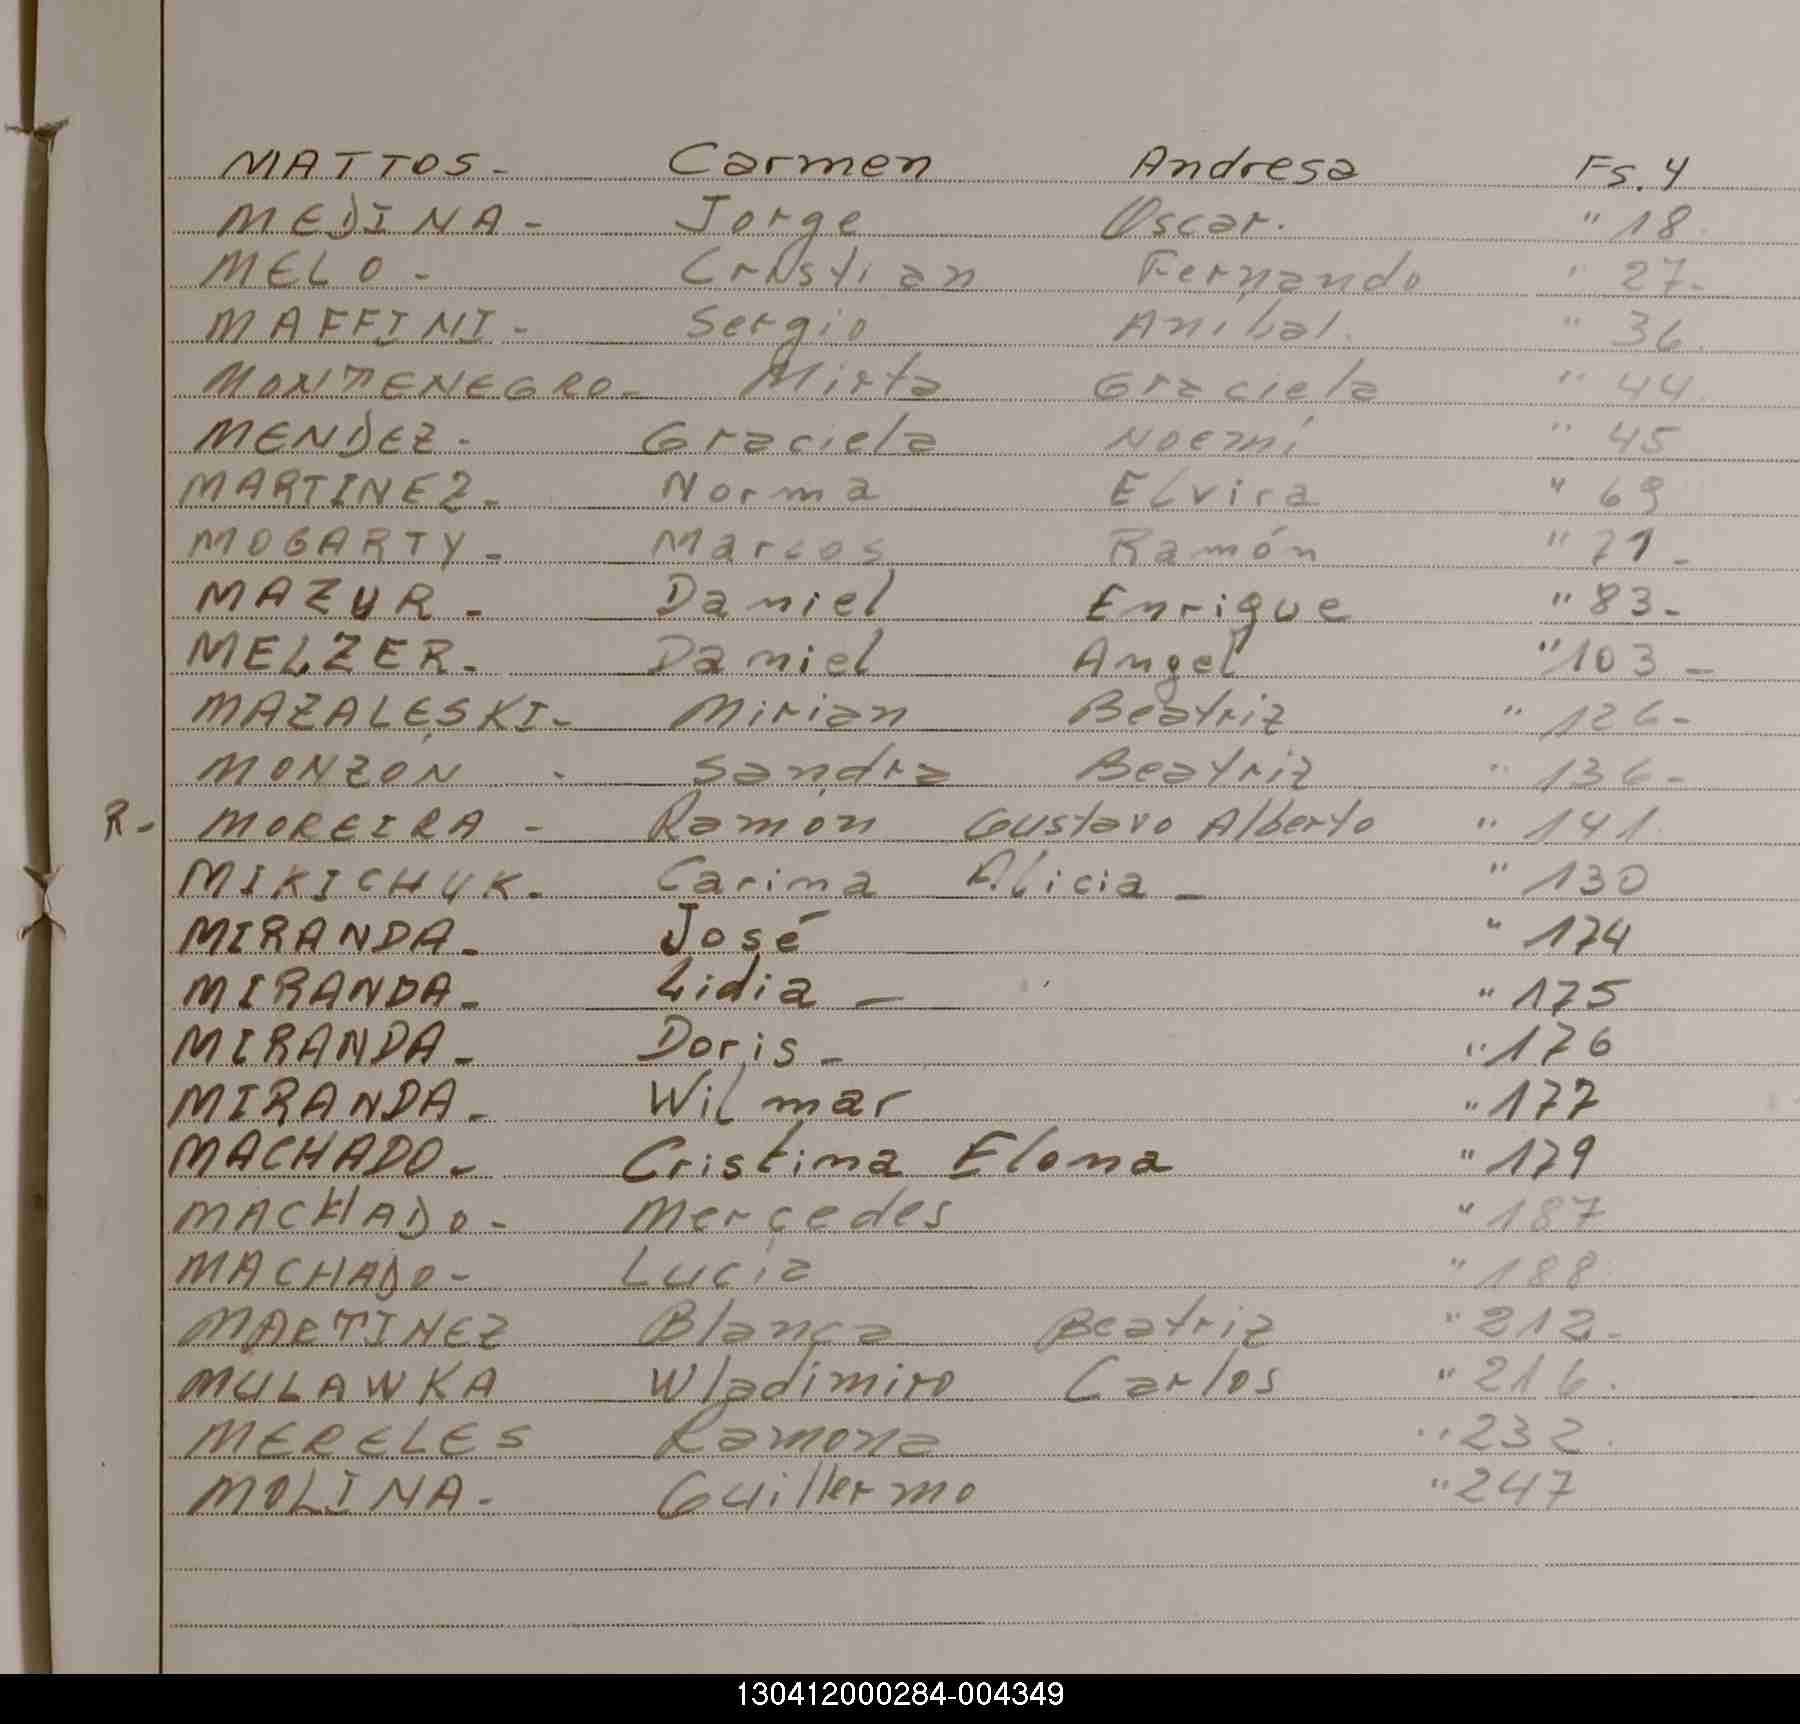 MATTOS- Carmen Andresa Fs. 4
MEDINA- Jorge Oscar. " 18.
MELO- Cristian Fernando " 27-
MAFFINI- Sergio Aníbal. " 36.
MONTENEGRO- Mirta Graciela " 44.
MENDEZ- Graciela Noemí " 45
MARTINEZ- Norma Elvira " 69
MOGARTY- Marcos Ramón " 71-
MAZUR- Daniel Enrique " 83-
MELZER- Daniel Angel " 103-
MAZALESKI- Mirian Beatriz " 126-
MONZÓN - Sandra Beatriz " 136-
R- MOREIRA- Ramón Gustavo Alberto " 141.
MIKICHUK- Carina Alicia- " 130
MIRANDA- José " 174
MIRANDA- Lidia- " 175
MIRANDA- Doris- " 176
MIRANDA- Wilmar " 177
MACHADO- Cristina Elena " 179
MACHADO- Mercedes " 187
MACHADO- Lucía " 188
MARTINEZ Blanca Beatriz " 212-
MULAWKA Wladimiro Carlos " 216.
MERELES Ramona " 232.
MOLINA- Guillermo " 247
130412000284-004349